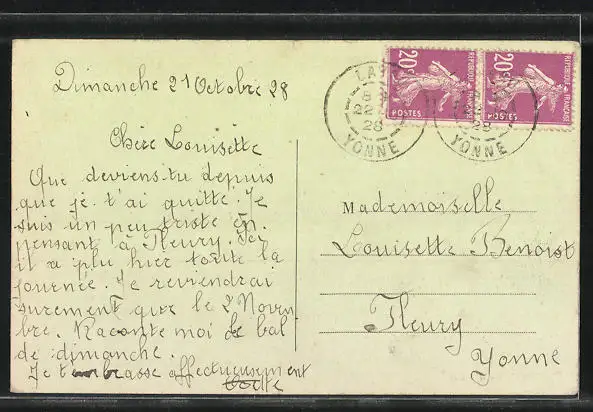 Dimanche 21 Octobre 28
Chère Louisette
Que deviens-tu depuis
que je t'ai quitté. Je
suis un peu triste en
pensant à Fleury. Ici
il a plu hier toute la
journée. Je reviendrai
surement que le 2 Novem
bre. Raconte moi le bal
de dimanche.
Je t'embrasse affectueusement
20c
REPUBLIQUE FRANÇAISE
POSTES
20c
REPUBLIQUE FRANÇAISE
POSTES
22
28
YONNE
28
YONNE
Mademoiselle
Louisette Benoist
Fleury
Yonne